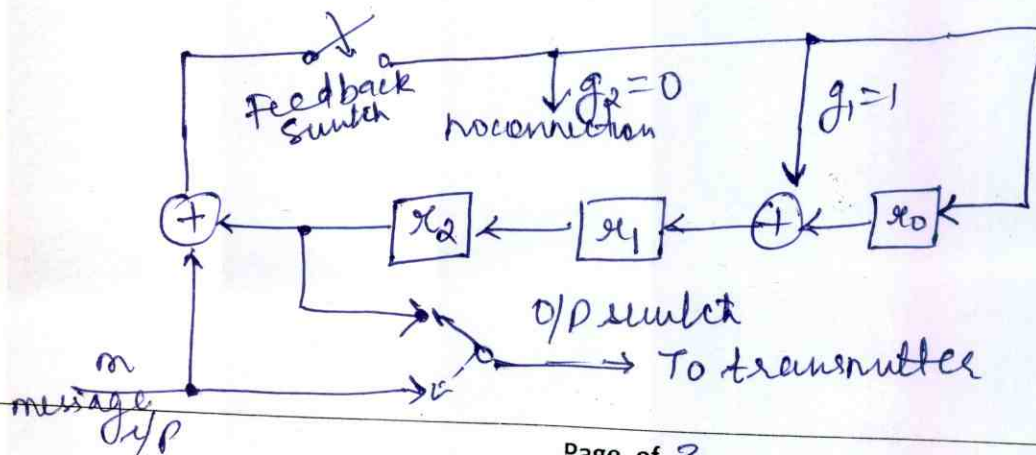 Feedback
Switch
g₂=0
noconnection
g₁=1
+
r₂
r₁
+
r₀
O/P switch
To transmitter
m
message
i/p
Page of 2